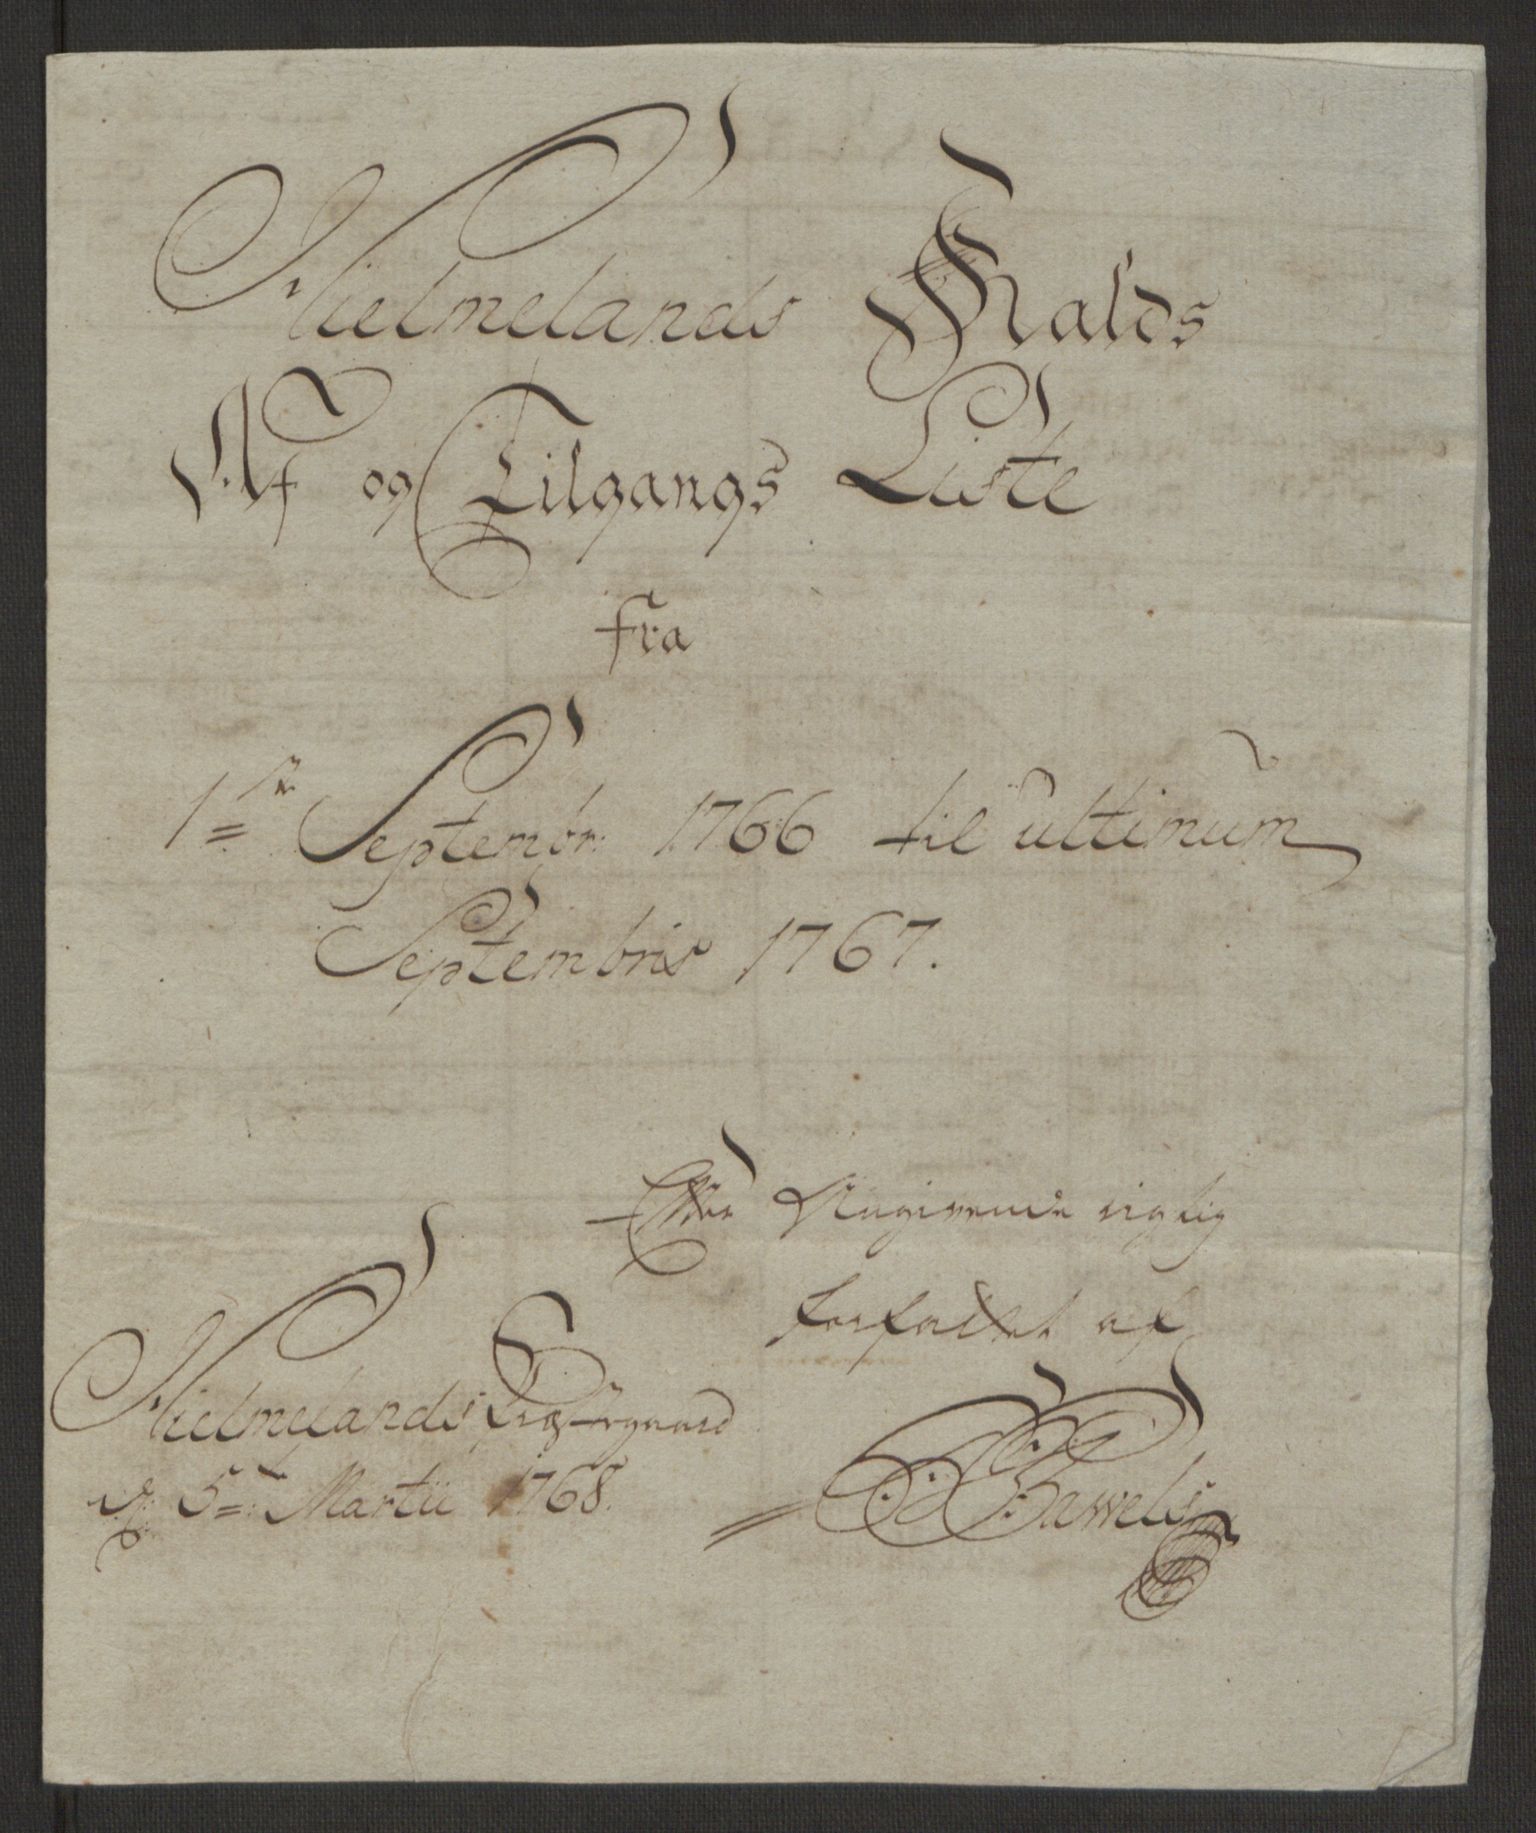 Hielmelands Kalds
Af og Tilgangs Liste
fra
1ste Septembr: 1766 til ultimum
Septembris 1767.
Efter Angivende rigtig
forfattet af
Hielmelands Præstegaard
d: 5te: Martii 1768.
Bawels